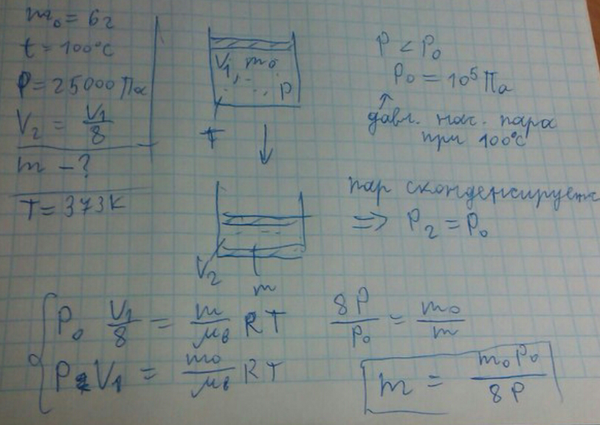 m₀ = 6г
t = 100°C
P = 25000 Па
V₂ = V₁/8
m - ?
T = 373K
V₁ m₀
P
T
P < P₀
P₀ = 10⁵ Па
давл. нас. пара
при 100°C
V₂
m
пар сконденсируется
⇒ P₂ = P₀
P₀ V₁/8 = m/μв RT
P V₁ = m₀/μв RT
8P/P₀ = m₀/m
m = m₀P₀/8P